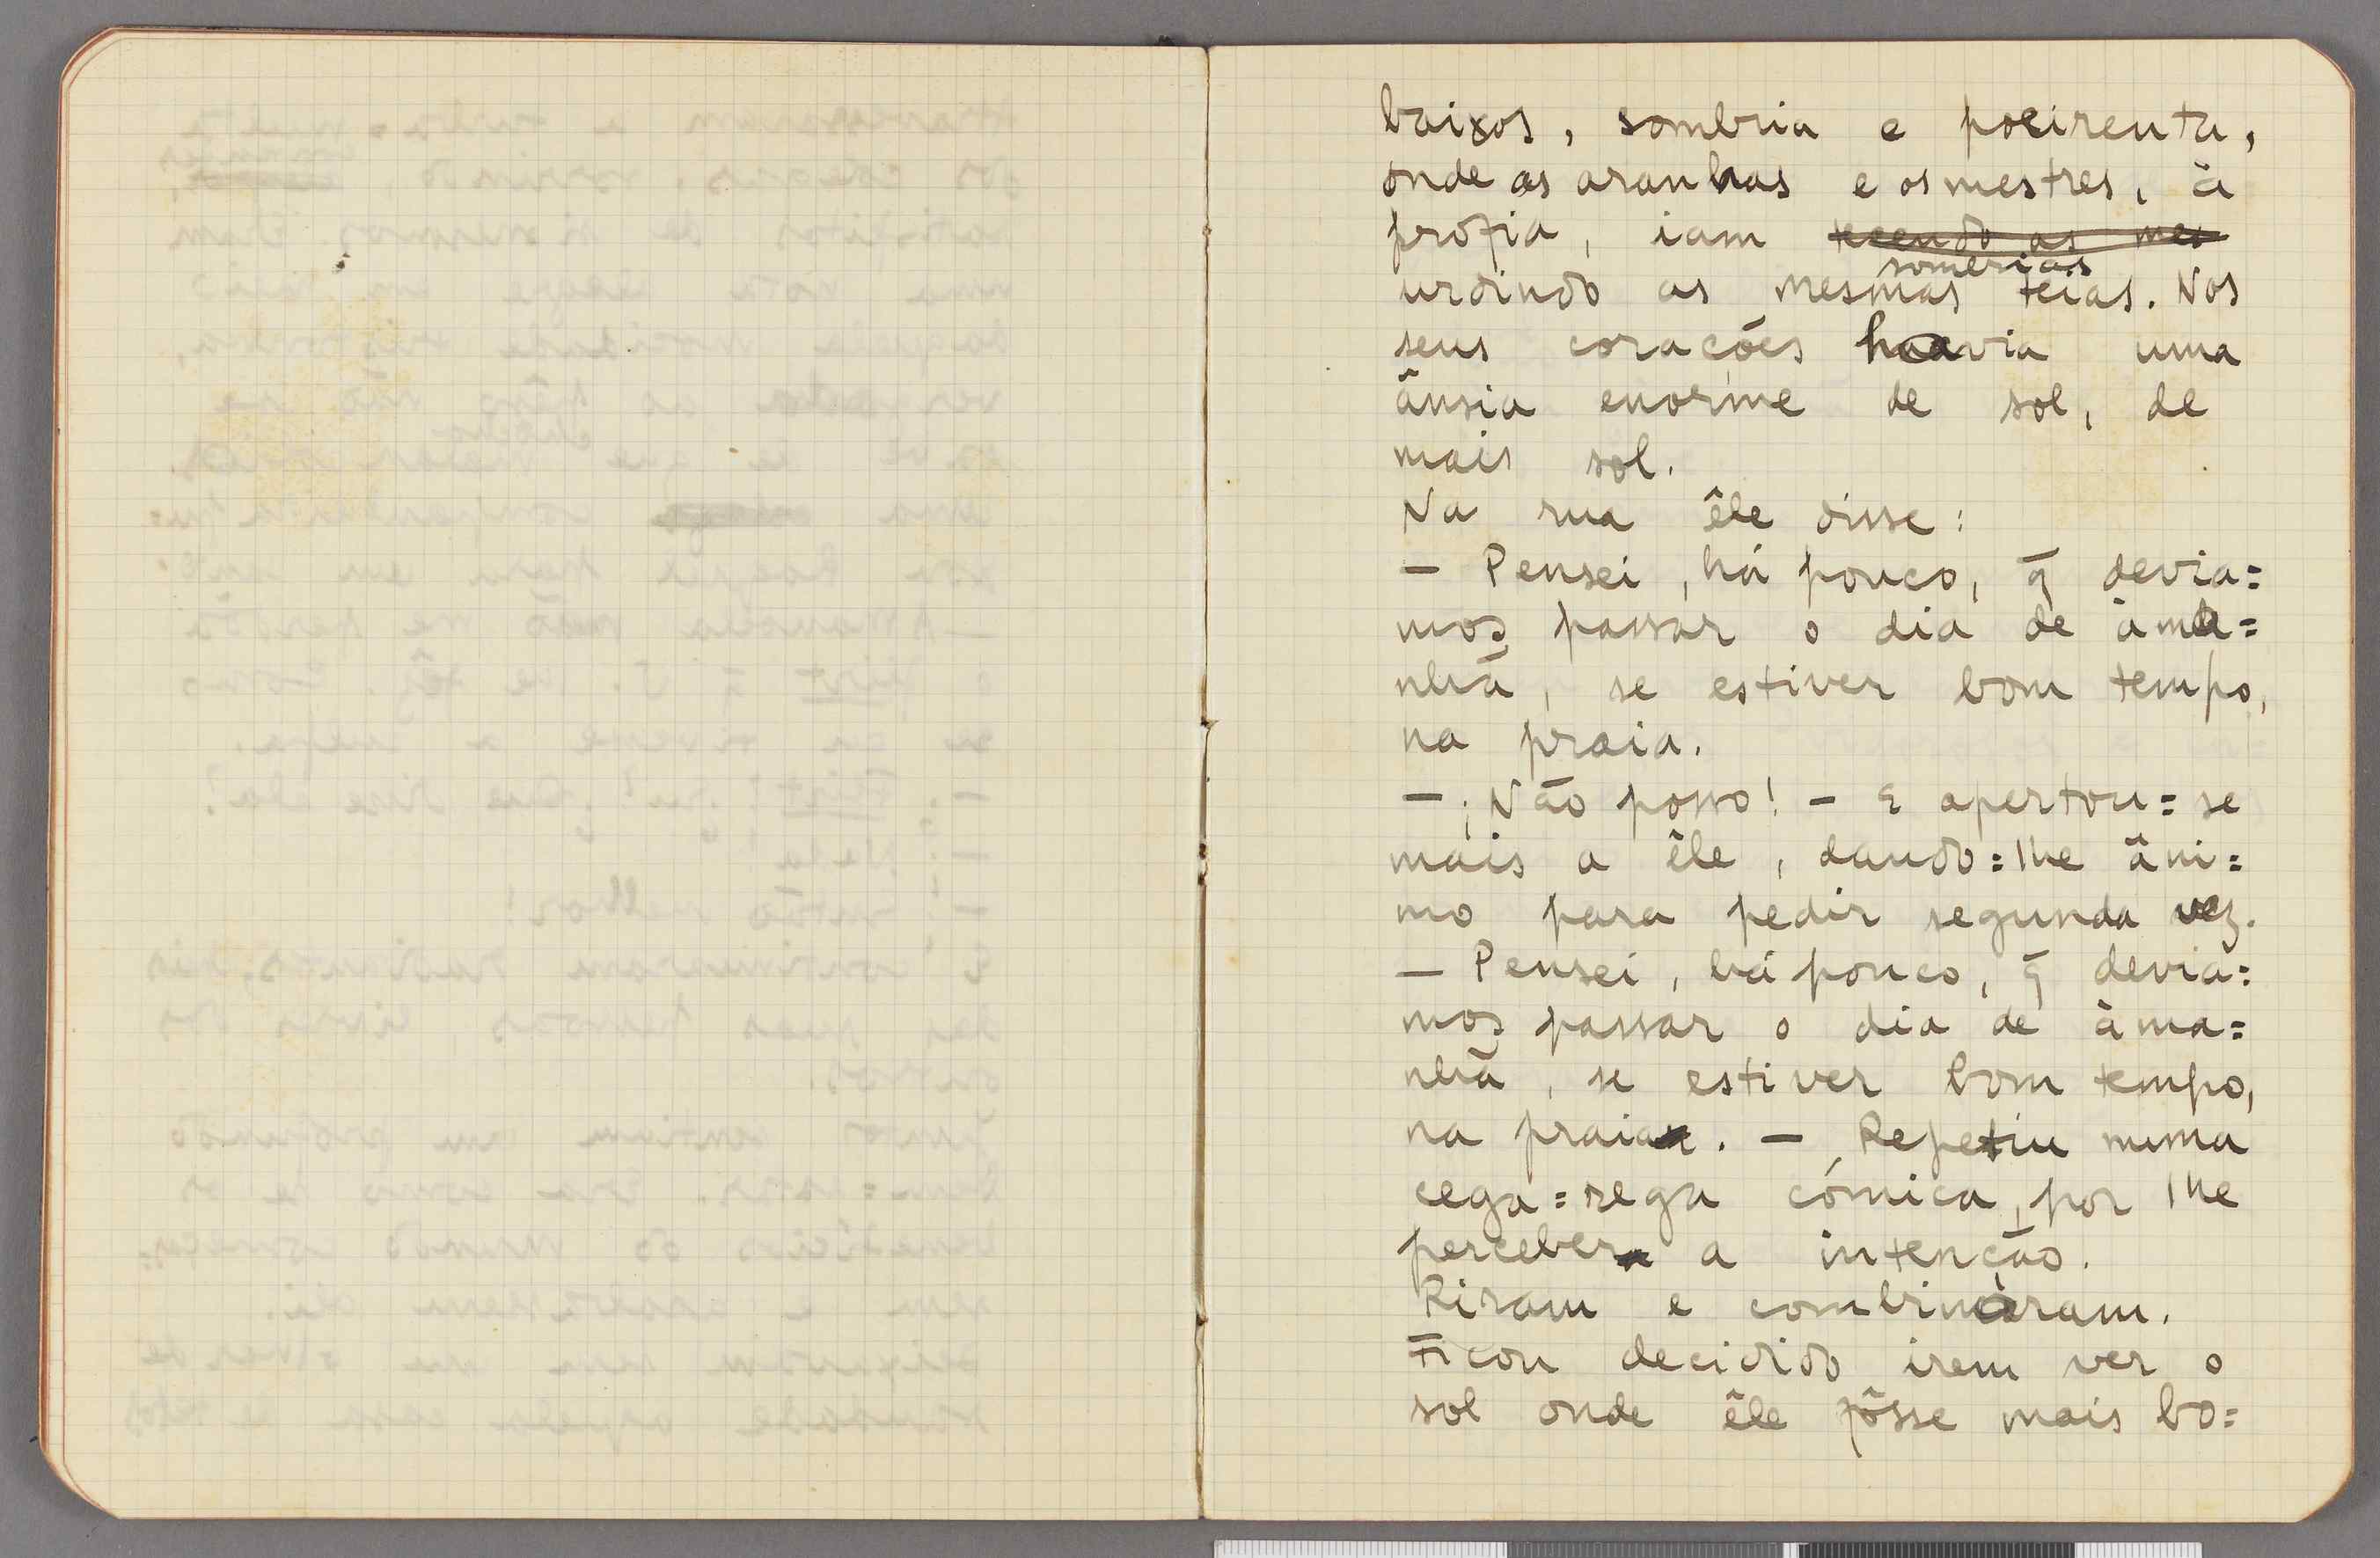 baixos, sombria e poeirenta,
onde as aranhas e os mestres, à
profia, iam tecendo as mes
sombrias
urdindo as mesmas teias. Nos
seus corações havia uma
ânsia enorme de sol, de
mais sol.
Na rua êle disse:
— Pensei, há pouco, q̃ devia=
mos passar o dia de àma=
nhã, se estiver bom tempo,
na praia.
— ¡Não posso! — E apertou=se
mais a êle, dando=lhe âni=
mo para pedir segunda vez.
— Pensei, há pouco, q̃ devia=
mos passar o dia de àma=
nhã, se estiver bom tempo,
na praia. — Repetiu numa
cega=rega cómica, por lhe
perceber a intenção.
Riram e combinaram.
Ficou decidido irem ver o
sol onde êle fôsse mais bo=